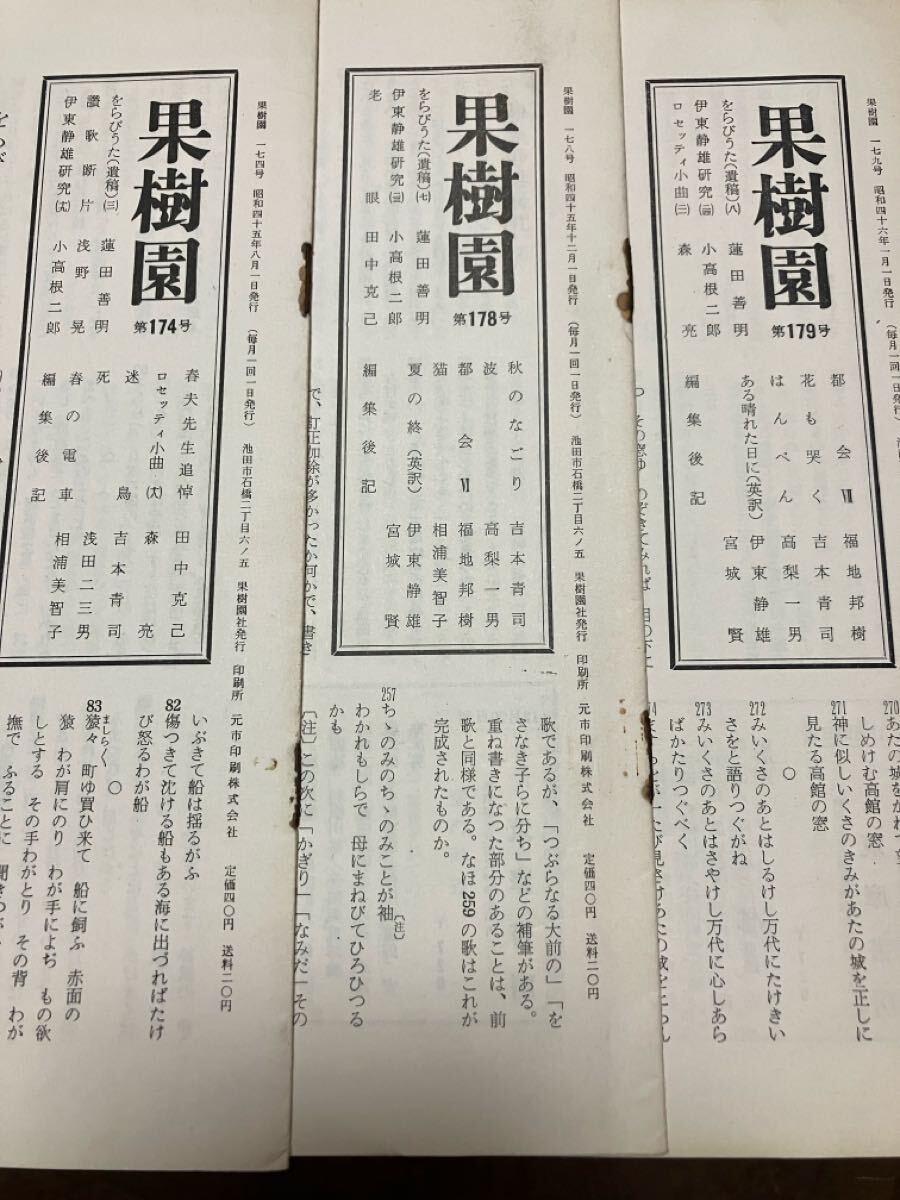 果樹園 一七九号 昭和四十六年一月一日発行 (毎月一回一日発行)
果樹園
第179号
をらびうた(遺稿)(八) 蓮田善明
伊東静雄研究 小高根二郎
ロセッティ小曲(二) 森亮
都会Ⅶ 福地邦樹
花も哭く 吉本青司
はんぺん 高梨一男
ある晴れた日に(英訳) 伊東静雄
宮城賢
編集後記
しめけむ高館の窓
271 神に似しいくさのきみがあたの城を正しに
見たる高館の窓
○
272 みいくさのあとはしるけし万代にたけきい
さをと語りつぐがね
273 みいくさのあとはさやけし万代に心しあら
ばかたりつぐべく
果樹園 一七八号 昭和四十五年十二月一日発行 (毎月一回一日発行) 池田市石橋二丁目六ノ五 果樹園社発行 印刷所 元市印刷株式会社 定価四〇円 送料二〇円
果樹園
第178号
をらびうた(遺稿)(七) 蓮田善明
伊東静雄研究 小高根二郎
老眼 田中克己
秋のなごり 吉本青司
波 高梨一男
都会Ⅵ 福地邦樹
猫 相浦美智子
夏の終(英訳) 伊東静雄
宮城賢
編集後記
歌であるが、「つぶらなる大前の」「を
さなき子らに分ち」などの補筆がある。
重ね書きになつた部分のあることは、前
歌と同様である。なほ259の歌はこれが
完成されたものか。
257 ちゝのみのちゝのみことが袖〔注〕
わかれもしらで 母にまねびてひろひつる
かも
〔注〕この次に「かぎり」「なみだ」その
で、訂正加除が多かったか何かで、書き
果樹園 一七四号 昭和四十五年八月一日発行 (毎月一回一日発行) 池田市石橋二丁目六ノ五 果樹園社発行 印刷所 元市印刷株式会社 定価四〇円 送料二〇円
果樹園
第174号
をらびうた(遺稿)(三) 蓮田善明
讃歌断片 浅野晃
伊東静雄研究 小高根二郎
春夫先生追悼 田中克己
ロセッティ小曲 森亮
迷鳥 吉本青司
死 浅田二三男
春の電車 相浦美智子
編集後記
いぶきて船は揺るがふ
82 傷つきて沈ける船もある海に出づればたけ
び怒るわが船
○
83 猿々ましらく 町ゆ買ひ来て 船に飼ふ 赤面の
猿 わが肩にのり わが手によぢ もの欲
しとする その手わがとり その背 わが
撫で ふることに